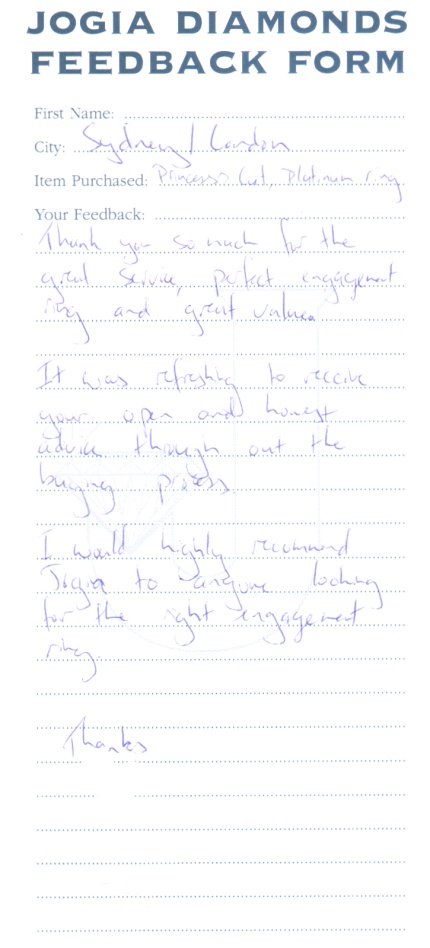 JOGIA DIAMONDS
FEEDBACK FORM
First Name:
City: Sydney / London
Item Purchased: Princess Cut, Platinum ring
Your Feedback:
Thank you so much for the
great service, perfect engagement
ring and great value.
It was refreshing to receive
your open and honest
advice through out the
buying process.
I would highly recommend
Jogia to anyone looking
for the right engagement
ring.
Thanks